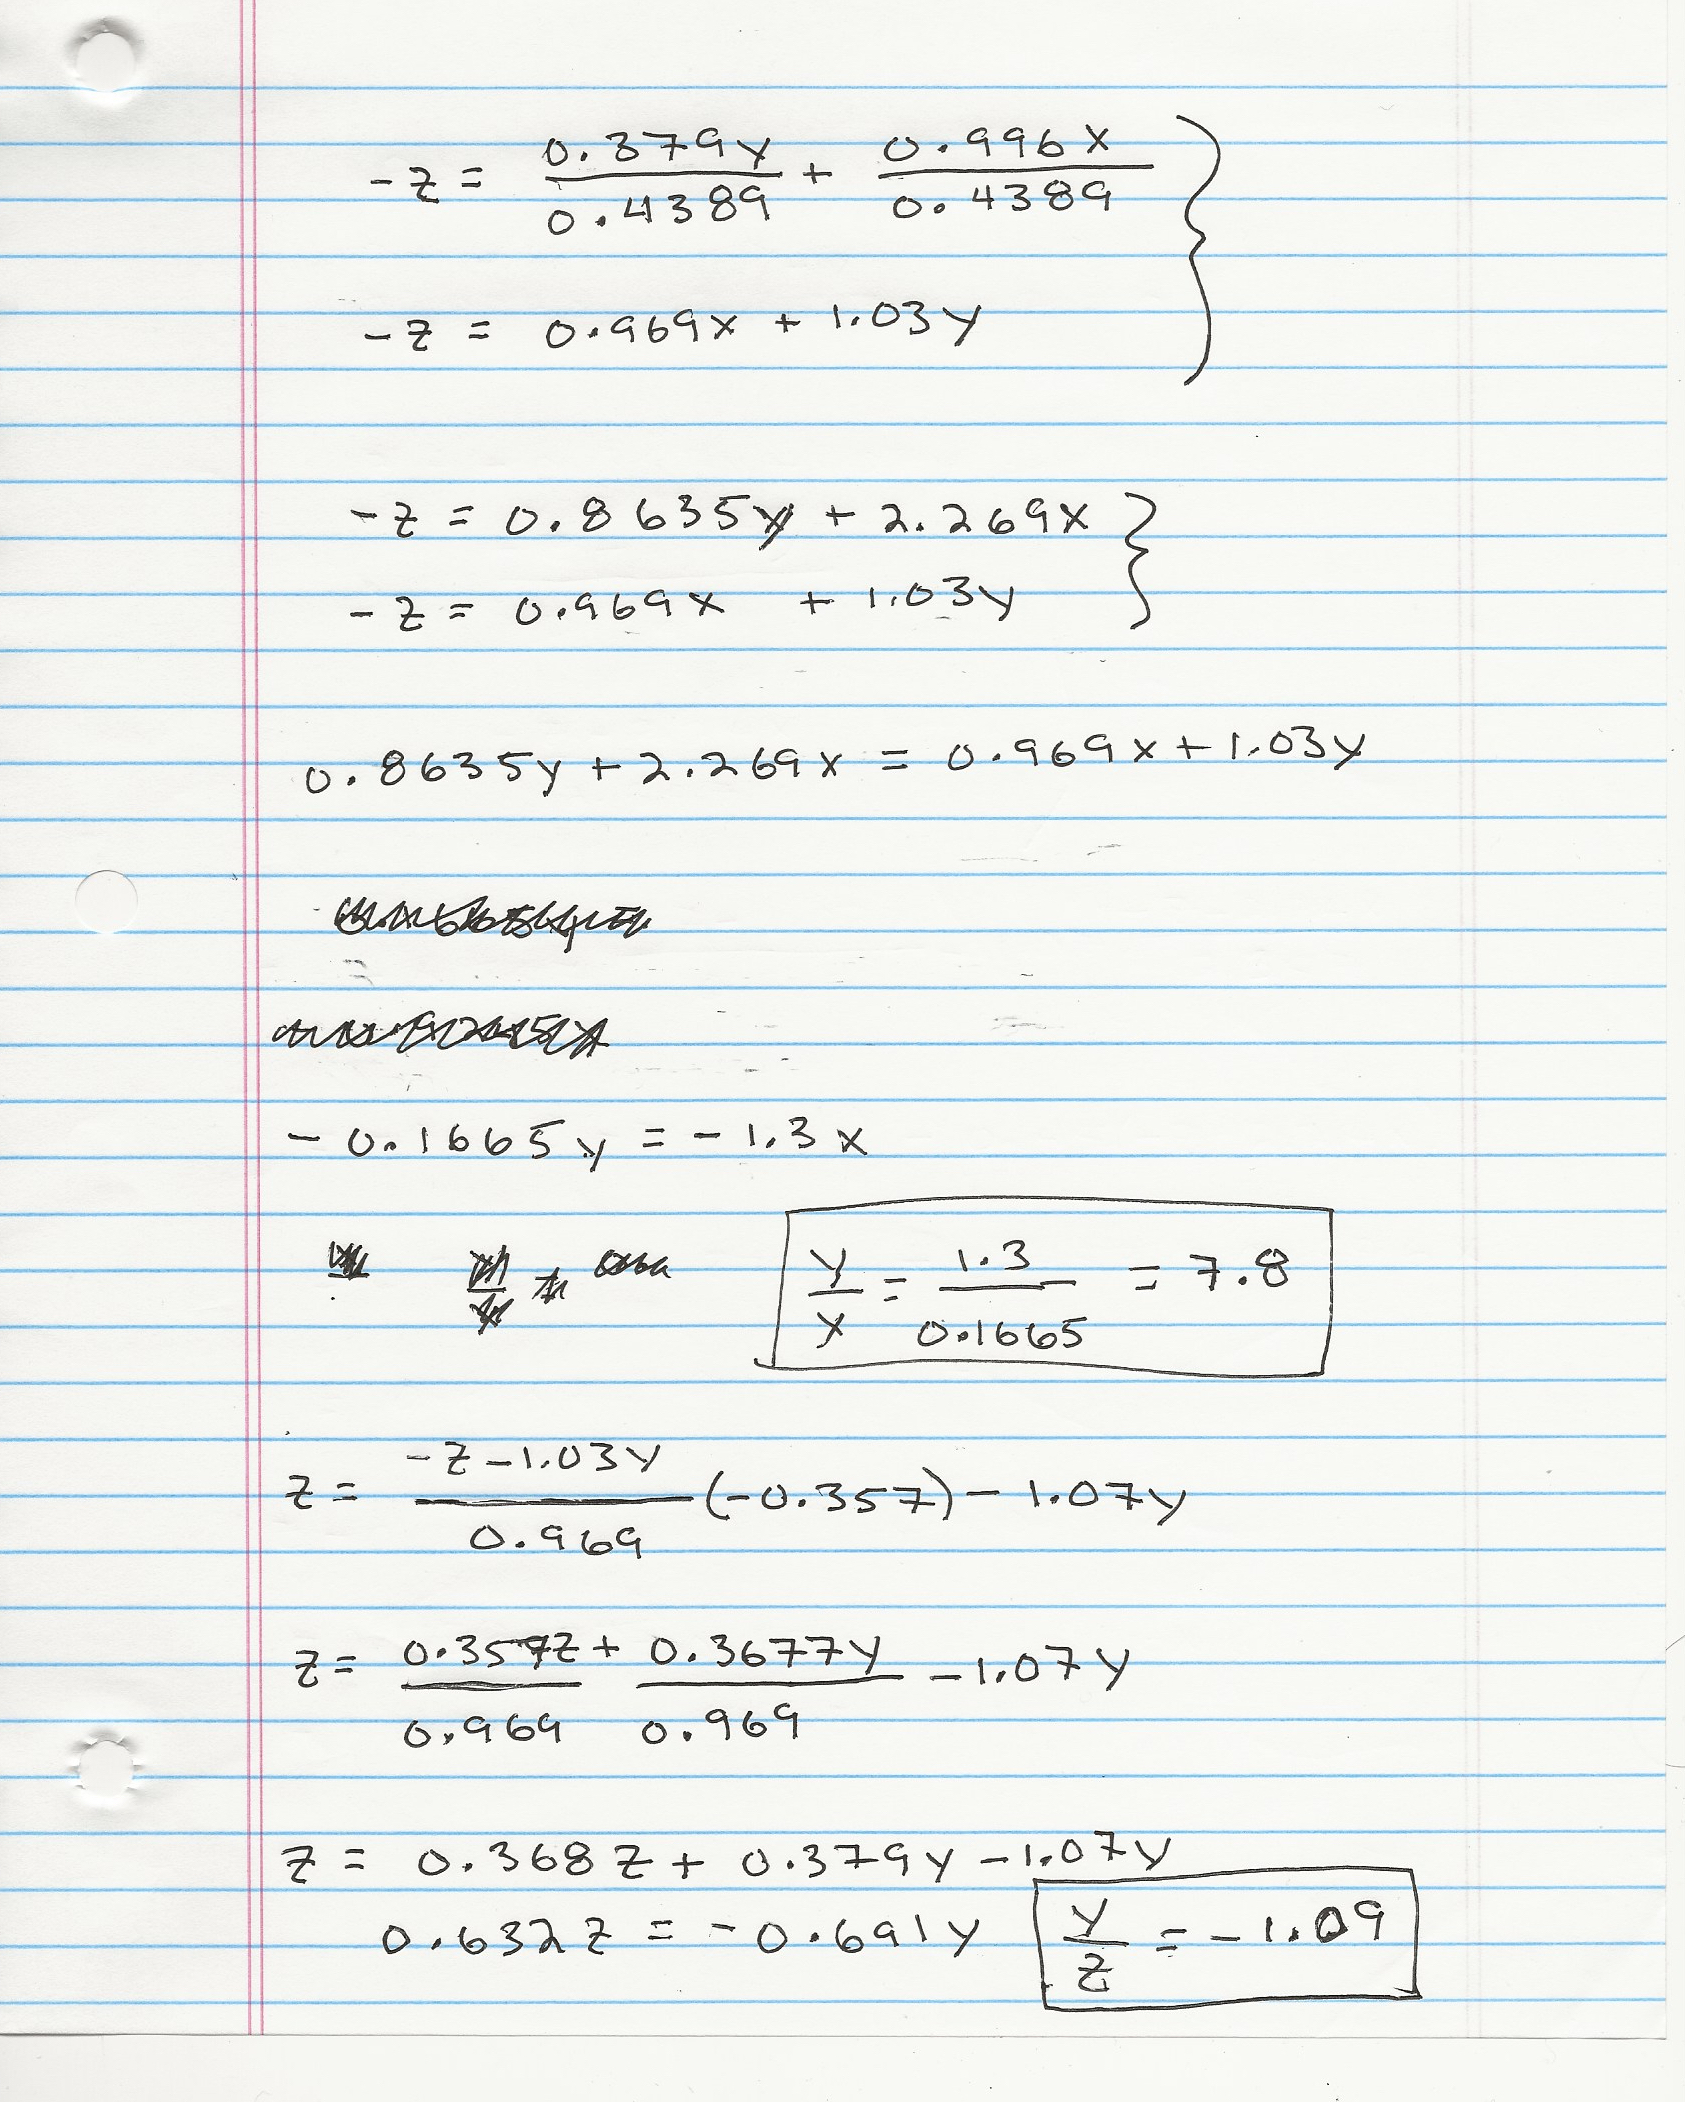 -z = 0.379y/0.4389 + 0.996x/0.4389
-z = 0.969x + 1.03y
-z = 0.8635y + 2.269x
-z = 0.969x + 1.03y
0.8635y + 2.269x = 0.969x + 1.03y
-0.1665y = -1.3x
y/x = 1.3/0.1665 = 7.8
z = -z-1.03y/0.969 (-0.357) - 1.07y
z = 0.357z/0.969 + 0.3677y/0.969 - 1.07y
z = 0.368z + 0.379y - 1.07y
0.632z = -0.691y
y/z = -1.09